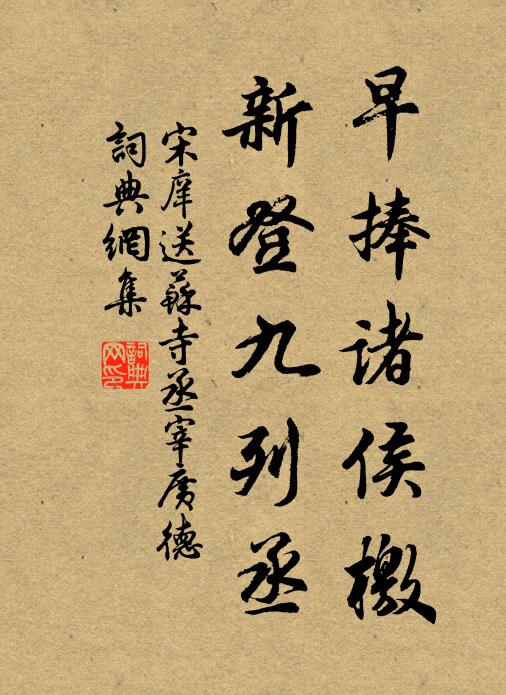 早捧诸侯檄
新登九列丞
宋庠送蘇寺丞宰廣德
詞典網集
詞典
网印